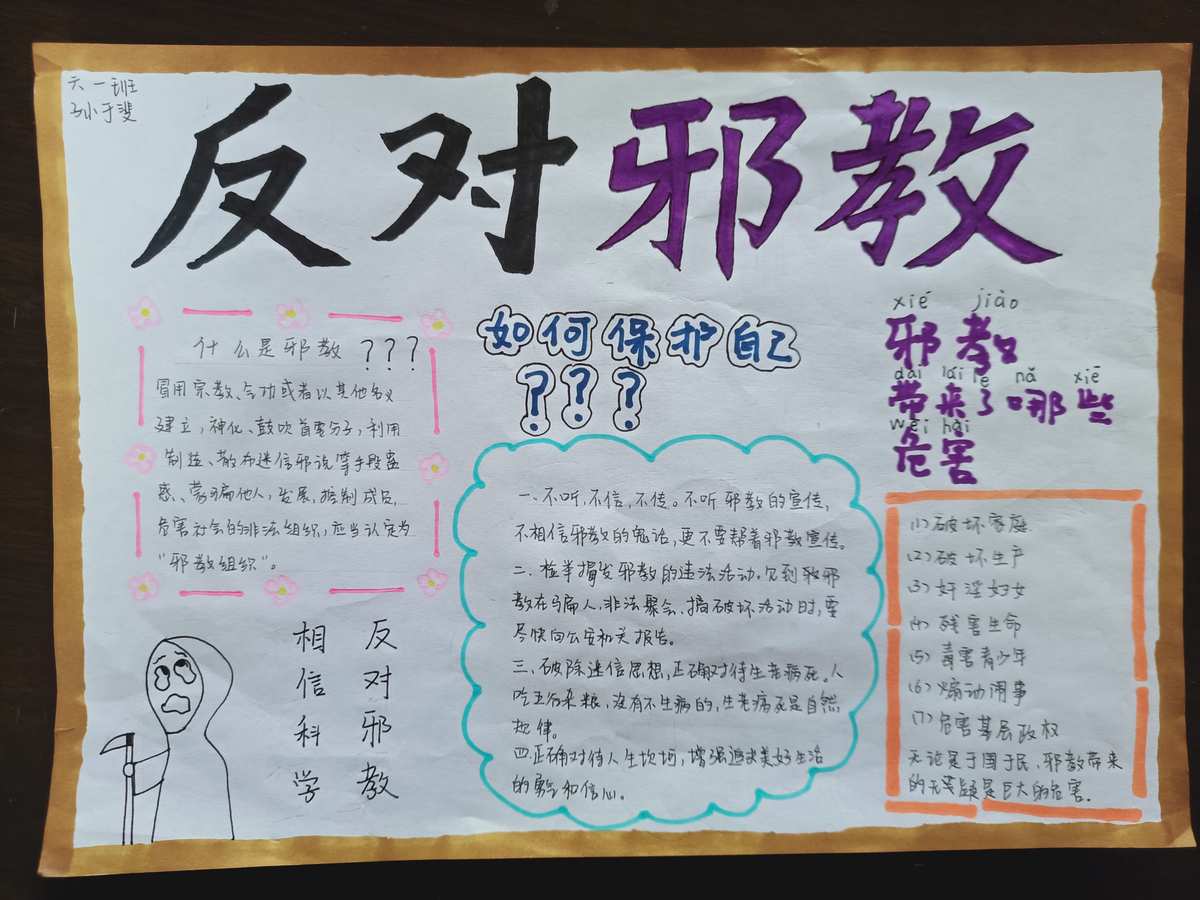 六一班
孙于斐
反对邪教
什么是邪教???
冒用宗教、气功或者以其他名义
建立,神化、鼓吹首要分子,利用
制造、散布迷信邪说等手段蛊
惑、蒙骗他人,发展,控制成员,
危害社会的非法组织,应当认定为
“邪教组织”。
反对邪教
相信科学
如何保护自己
???
一、不听,不信,不传。不听邪教的宣传,
不相信邪教的鬼话,更不要帮着邪教宣传。
二、检举揭发邪教的违法活动。见到邪
教在骗人、非法聚会、搞破坏活动时,要
尽快向公安机关报告。
三、破除迷信思想,正确对待生老病死。人
吃五谷杂粮,没有不生病的,生老病死是自然
规律。
四、正确对待人生坎坷,增强追求美好生活
的勇气和信心。
xié jiào
邪教
dài lái le nǎ xiē
带来了哪些
wēi hài
危害
(1)破坏家庭
(2)破坏生产
(3)奸淫妇女
(4)残害生命
(5)毒害青少年
(6)煽动闹事
(7)危害基层政权
无论是于国于民、邪教带来
的无疑是巨大的危害.